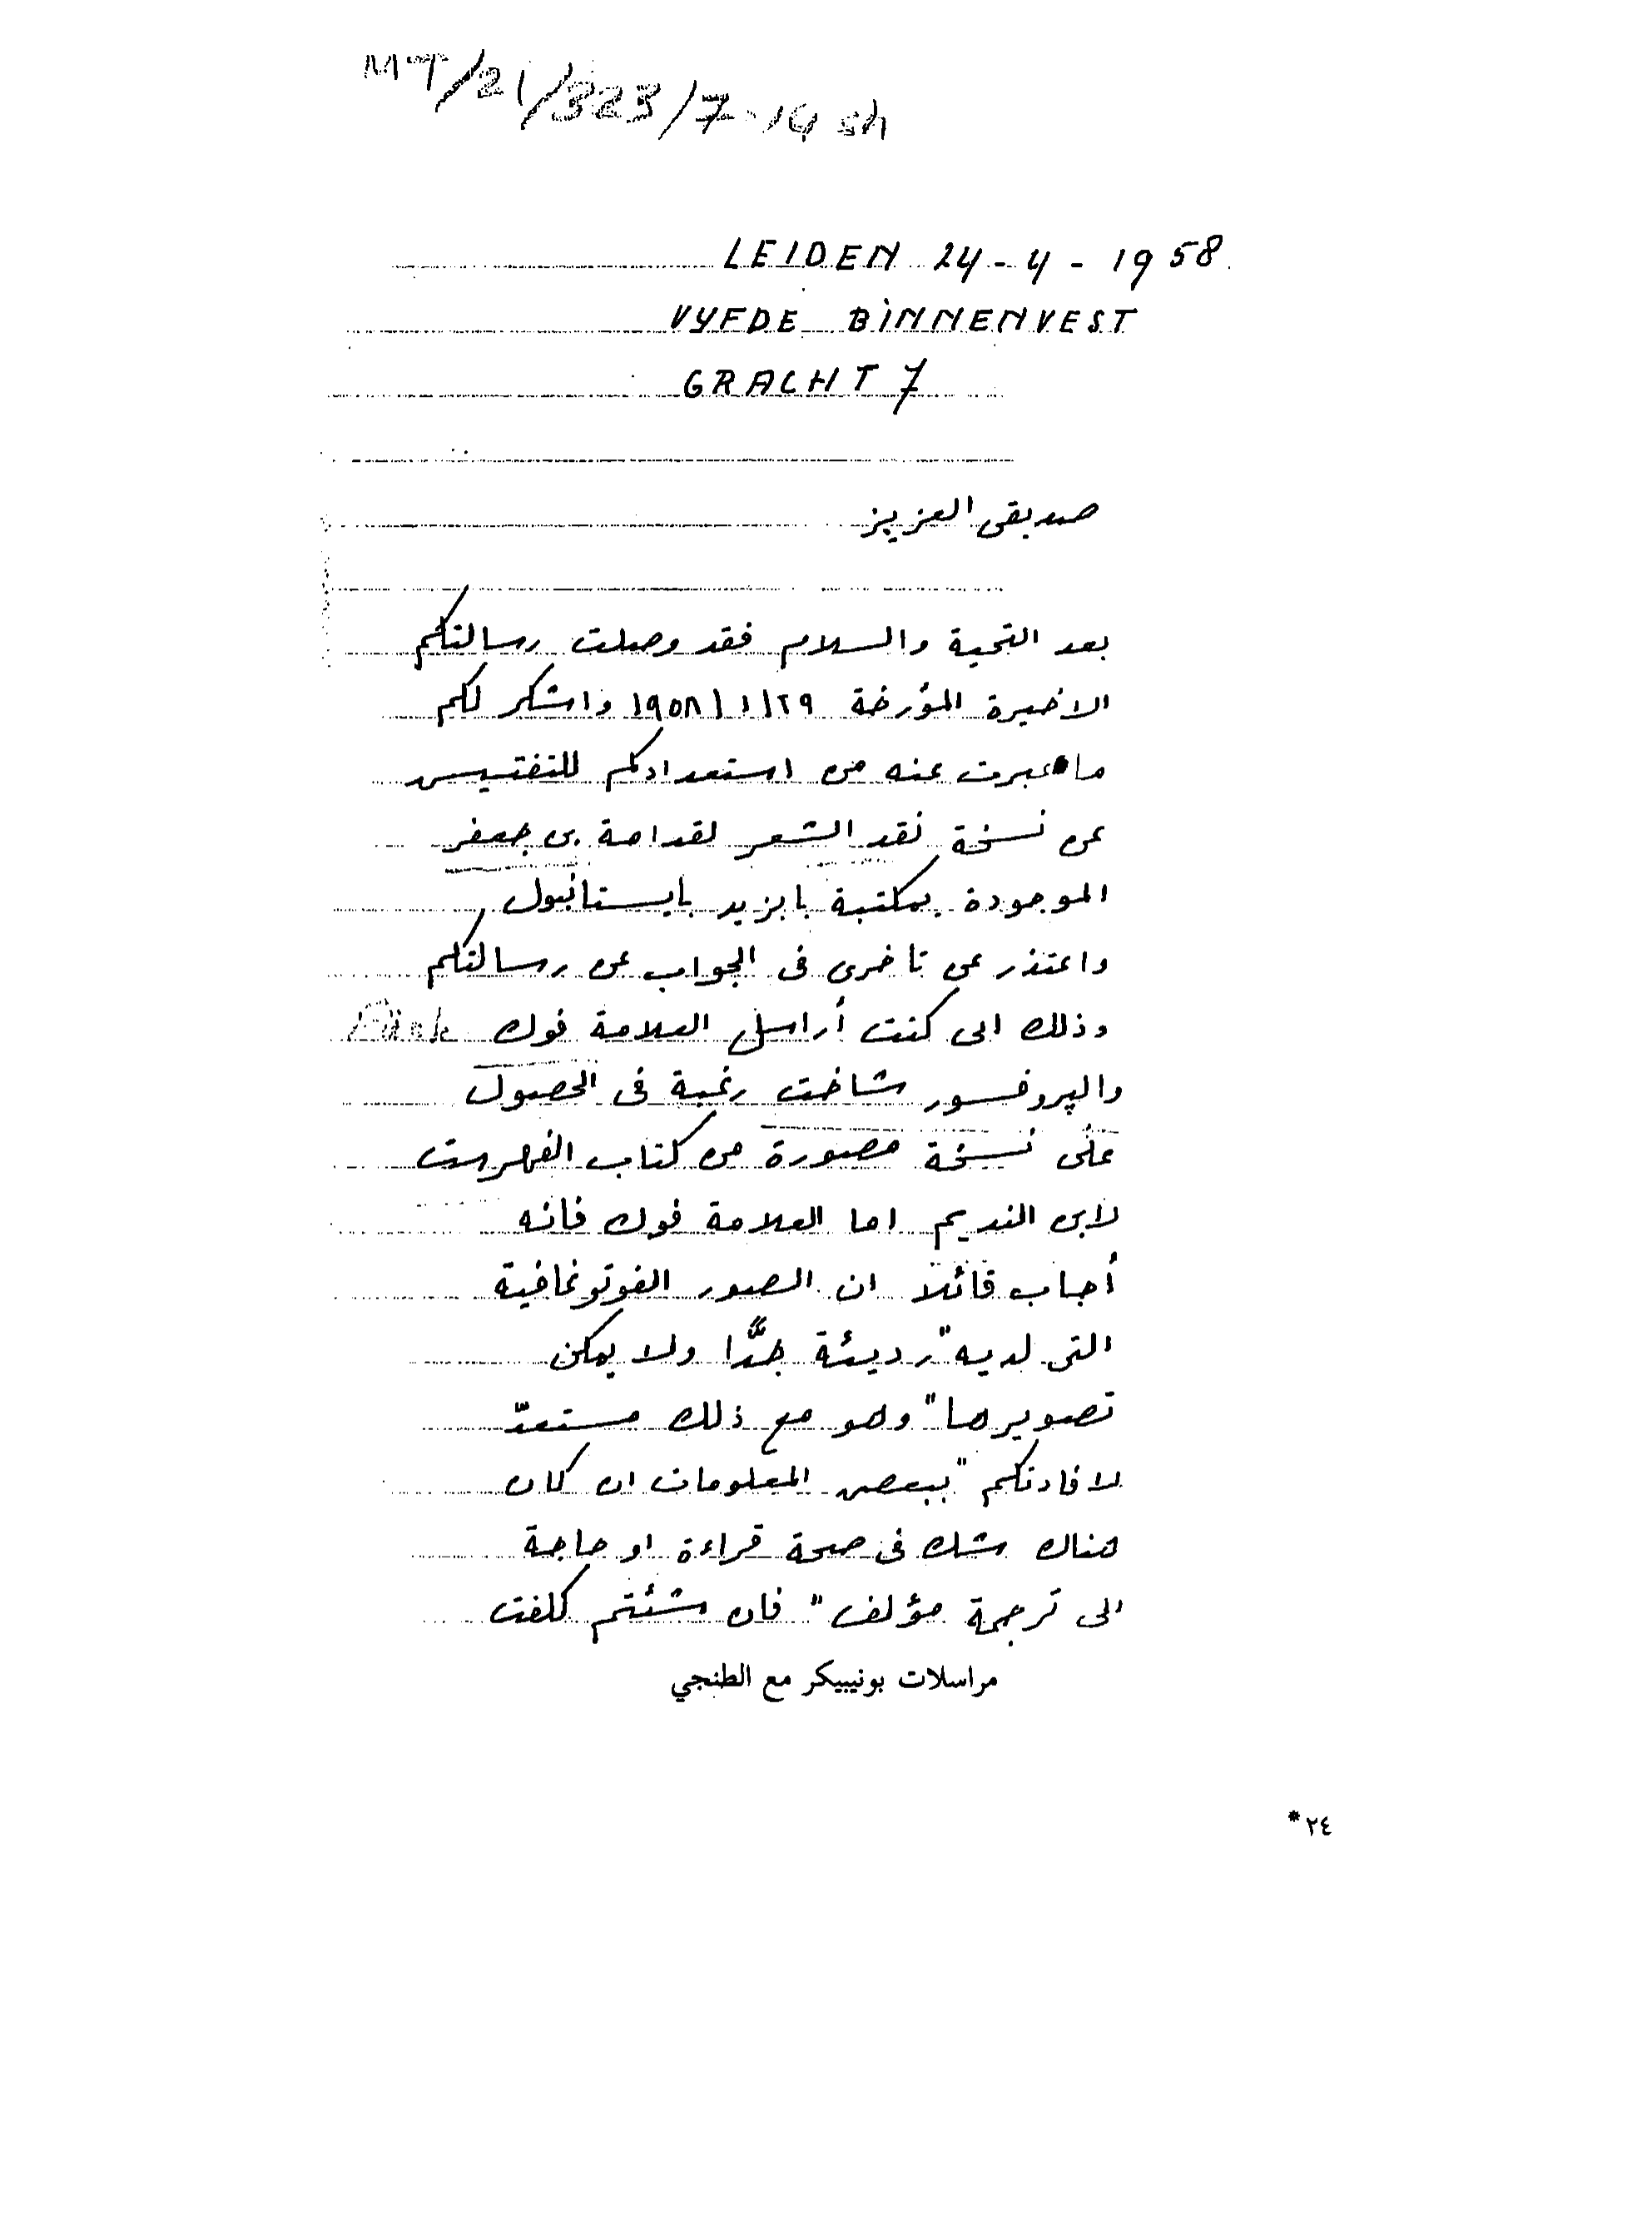 MT/21/323/7-14 sh
LEIDEN 24-4-1958
VYFDE BINNENVEST
GRACHT 7
صديقى العزيز
بعد التحية والسلام فقد وصلت رسالتكم
الاخيرة المؤرخة ١٩٥٨/١/٢٩ واشكر لكم
ما عبرت عنه من استعدادكم للتفتيش
عن نسخة نقد الشعر لقدامة بن جعفر
الموجودة بمكتبة بايزيد بايستانبول
واعتذر عن تاخرى فى الجواب عن رسالتكم
وذلك انى كنت أراسل العلامة فوك Fück
والپروفسور شاخت رغبة فى الحصول
على نسخة مصورة من كتاب الفهرست
لابن النديم اما العلامة فوك فانه
أجاب قائلا ان الصور الفوتوغرافية
التى لديه "رديئة جدًّا ولا يمكن
تصويرها" وهو مع ذلك مستعدّ
لافادتكم "ببعض المعلومات ان كان
هناك شك فى صحة قراءة او حاجة
الى ترجمة مؤلف" فان شئتم كلفت
مراسلات بونيبيكر مع الطنجي
*٢٤